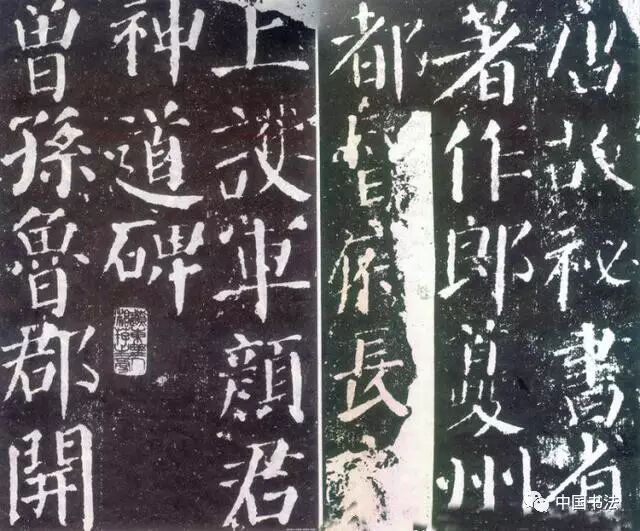 唐故秘書省
著作郎夏州
都督府長史
上護軍顏君
神道碑
曾孫魯郡開
中国书法